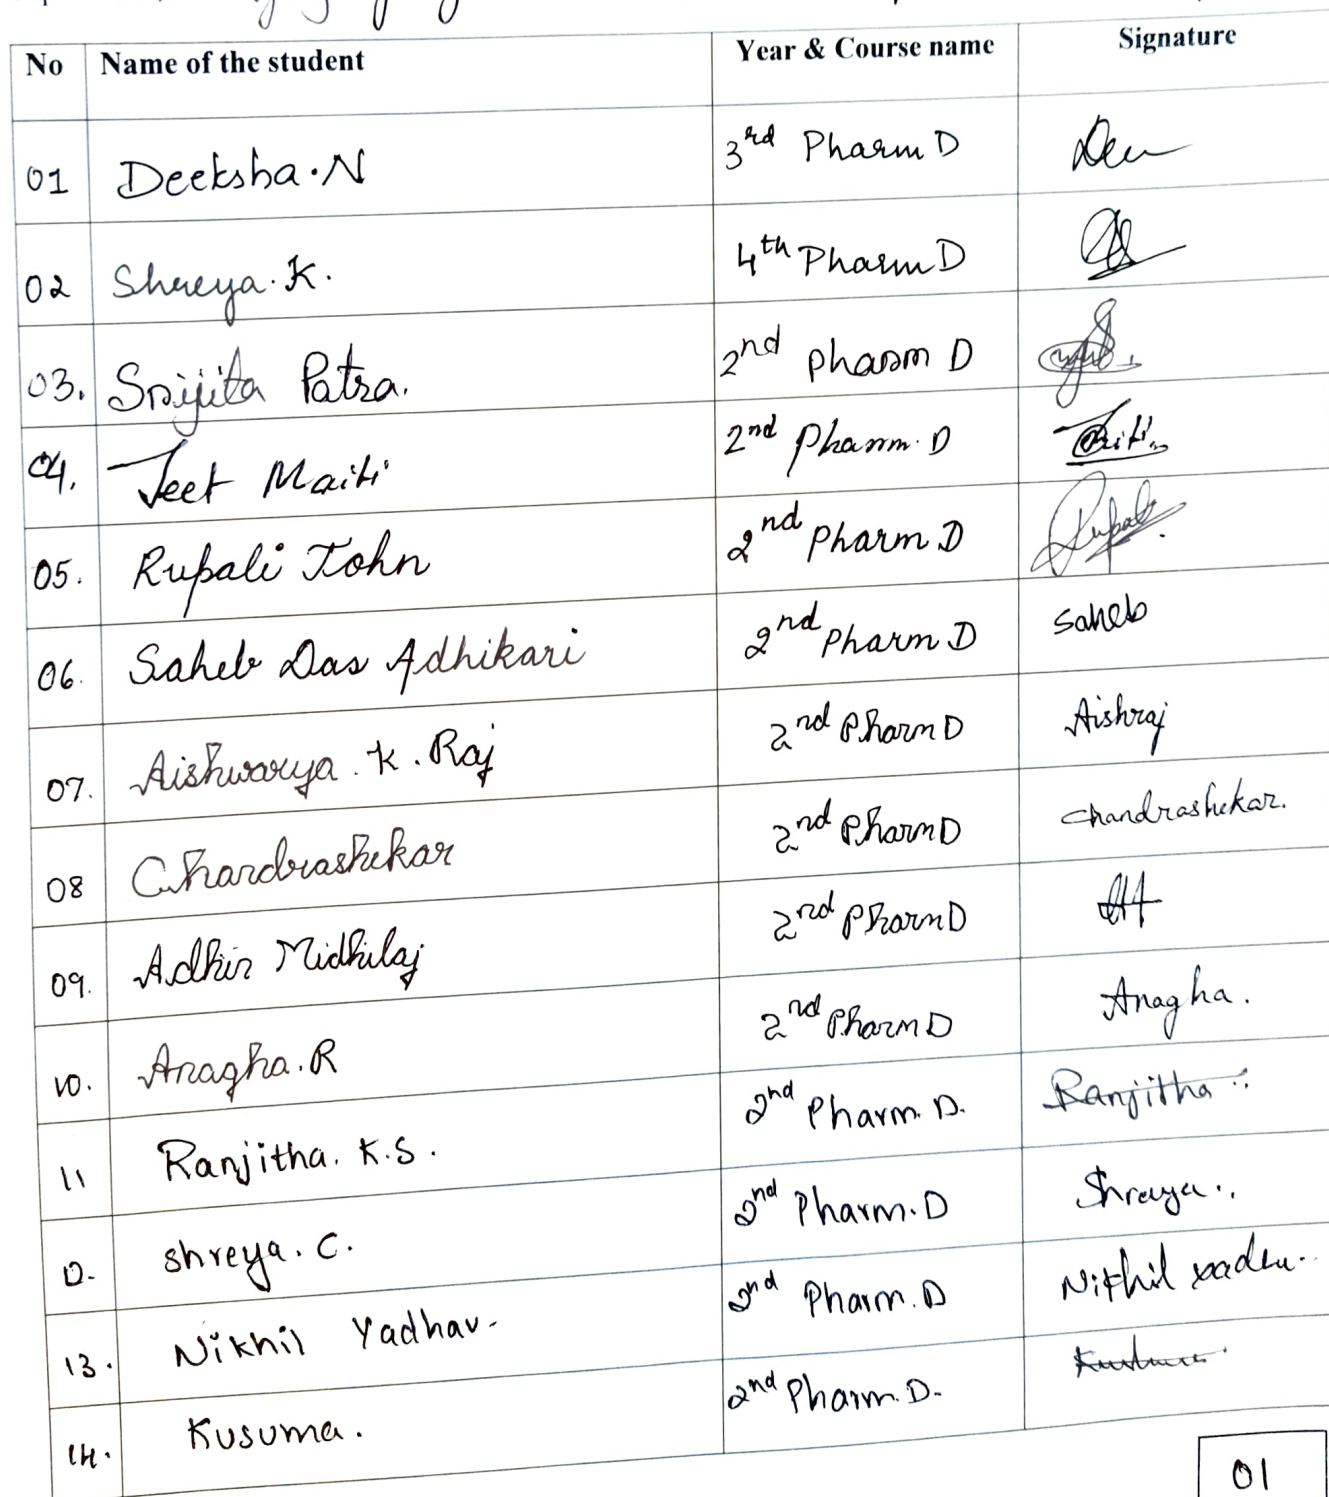 No Name of the student Year & Course name Signature
01 Deeksha.N 3rd Pharm D
02 Shreya.K. 4th Pharm D
03. Srijita Patra. 2nd Pharm D
04. Jeet Maiti 2nd Pharm.D
05. Rupali John 2nd Pharm D Rupali
06. Saheb Das Adhikari 2nd Pharm D Saheb
07. Aishwarya.K.Raj 2nd Pharm D Aishraj
08 Chandrashekar 2nd Pharm D Chandrashekar.
09. Adhin Midhilaj 2nd Pharm D
10. Anagha.R 2nd Pharm D Anagha.
11 Ranjitha. K.S. 2nd Pharm. D. Ranjitha
shreya. C. 2nd Pharm.D Shreya..
13. Nikhil Yadhav- 2nd Pharm.D
14. Kusuma. 2nd Pharm.D. Kusuma
01